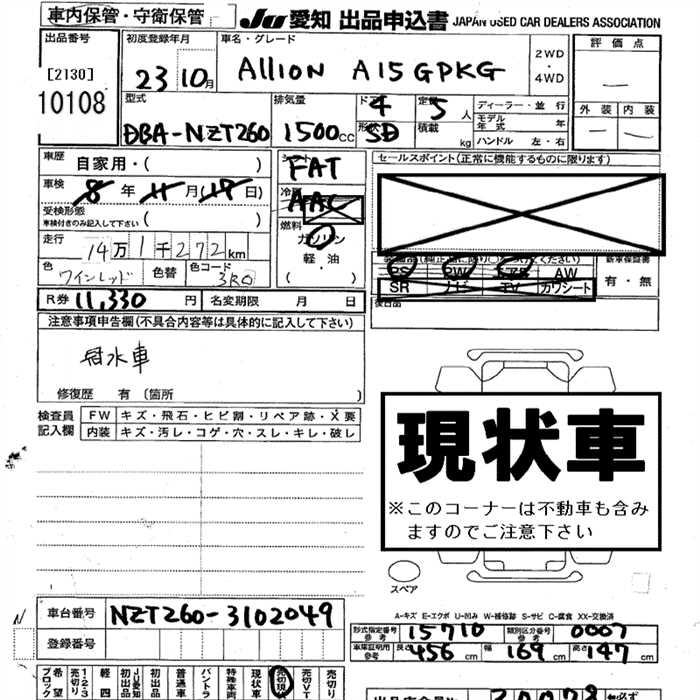 車内保管・守衛保管
JU 愛知 出品申込書 JAPAN USED CAR DEALERS ASSOCIATION
出品番号
[2130]
10108
初度登録年月
23 10月
車名・グレード
ALLION A15 GPKG
2WD
・
4WD
評価点
外装 内装
型式
DBA-NZT260
排気量
1500cc
ドア
4
形状
SD
定員
5人
積載
kg
ディーラー・並行
モデル年式 年
ハンドル 左・右
車歴
自家用・( )
車検
8年 11月(17日)
受検形態
車検付きのみ記入して下さい
( )
走行
14万1千272km
色
ワインレッド
色替
色コード
3R0
R券 11,330円
名変期限 月 日
シフト
FAT
冷房
AAC
燃料
ガソリン
軽・油
( )
セールスポイント(正常に機能するものに限ります)
PS PW AW
SR ナビ TV カワシート
新車保証書
有・無
後日品
注意事項申告欄(不具合内容等は具体的に記入して下さい)
冠水車
修復歴 有〔箇所 〕
検査員
記入欄
FW キズ・飛石・ヒビ割・リペア跡・X要
内装 キズ・汚レ・コゲ・穴・スレ・キレ・破レ
現状車
※このコーナーは不動車も含み
ますのでご注意下さい
スペア
A-キズ E-エクボ U-凹み W-補修跡 S-サビ C-腐食 XX-交換済
車台番号 NZT260-3102049
登録番号
形式指定番号
参考
15710
類別区分番号
参考
0007
車庫証明用
参考
長さ 456cm 幅 169cm 高さ 147cm
希望ブロック
1・2・3
売切り
JU愛知
初出品
初出品
普通車
バントラ
特殊車両
現状車
売切現
売切VT
売切り